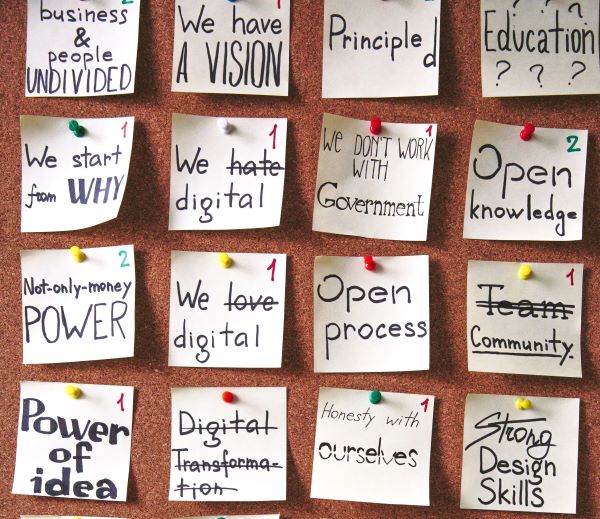 business
&
people
UNDIVIDED
We have
A VISION
Principled
? ? ?
Education
? ? ?
1
We start
from WHY
1
We hate
digital
1
We DON'T WORK
WITH
Government
2
Open
knowledge
2
Not-only-money
POWER
1
We love
digital
Open
process
1
Team
Community
1
Power
of
idea
Digital
Transforma-
tion
1
Honesty with
ourselves
Strong
Design
Skills